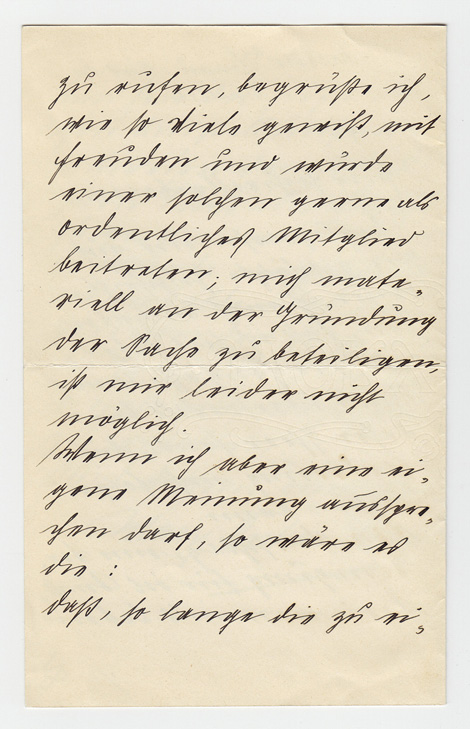 zu rufen, begrüße ich,
wie so Viele gewiß, mit
Freuden und würde
einer solchen gerne als
ordentliches Mitglied
beitreten; mich mate-
riell an der Gründung
der Sache zu beteiligen,
ist mir leider nicht
möglich.
Wenn ich aber eine ei-
gene Meinung ausspre-
chen darf, so wäre es
die:
daß, so lange die zu ei-